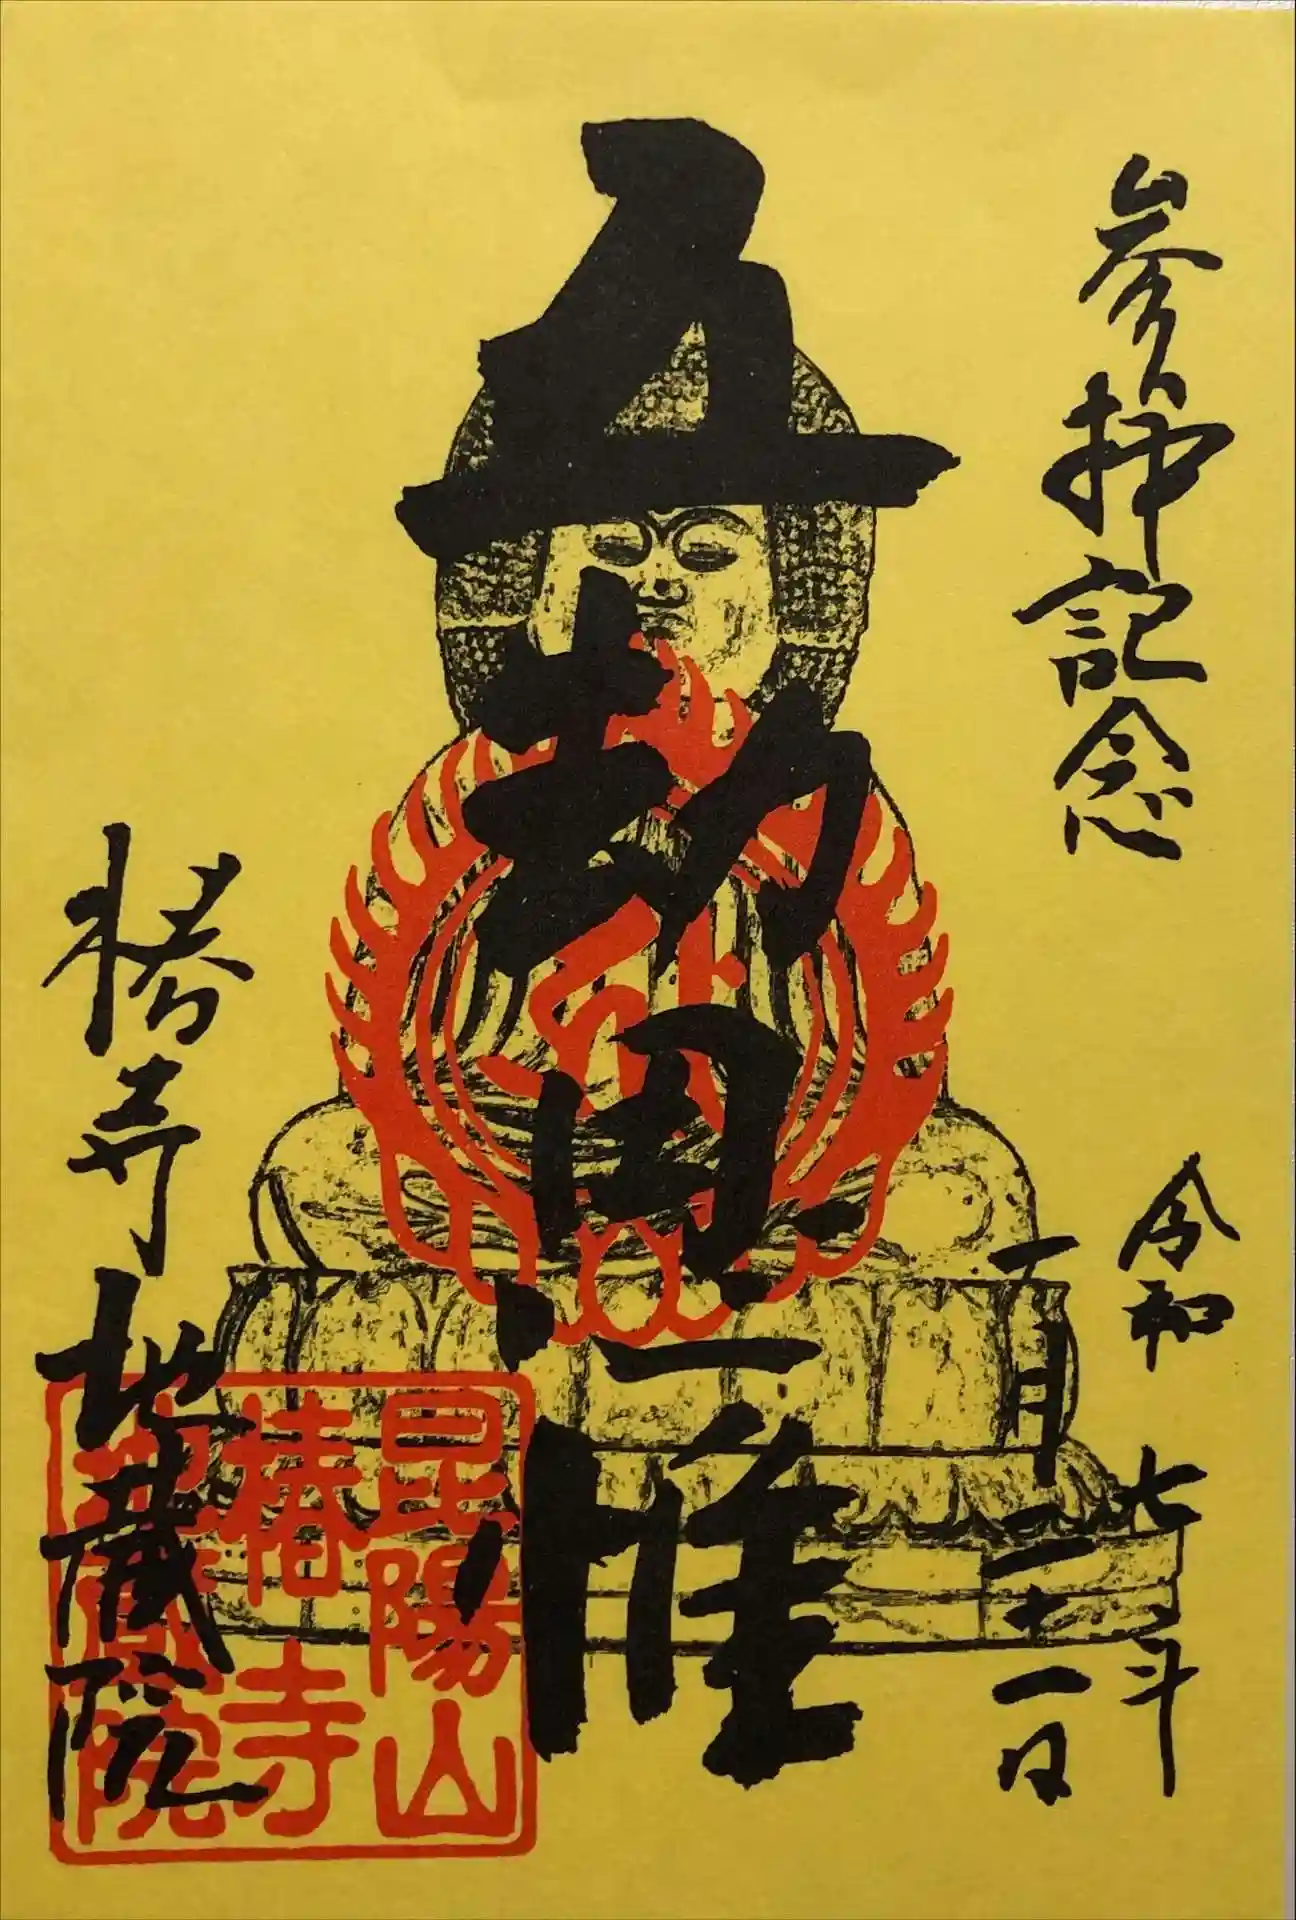 参拝記念
令和七年
一月二十一日
五劫思惟
椿寺地蔵院
昆陽山
椿寺
地蔵院